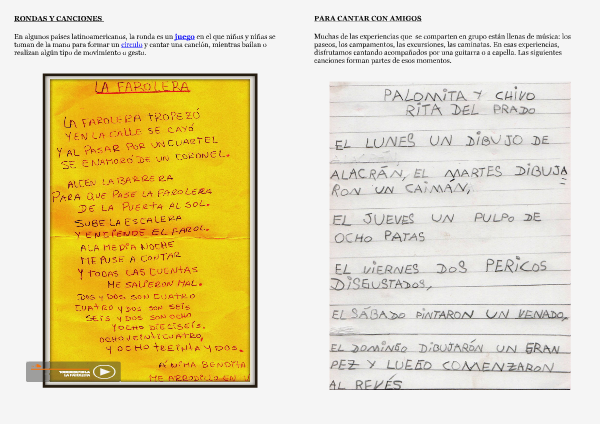 RONDAS Y CANCIONES
En algunos países latinoamericanos, la ronda es un juego en el que niños y niñas se
toman de la mano para formar un círculo y cantar una canción, mientras bailan o
realizan algún tipo de movimiento o gesto.
LA FAROLERA
LA FAROLERA TROPEZÓ
Y EN LA CALLE SE CAYÓ
Y AL PASAR POR UN CUARTEL
SE ENAMORÓ DE UN CORONEL.
ALCEN LA BARRERA
PARA QUE PASE LA FAROLERA
DE LA PUERTA AL SOL.
SUBE LA ESCALERA
Y ENCIENDE EL FAROL.
A LA MEDIA NOCHE
ME PUSE A CONTAR
Y TODAS LAS CUENTAS
ME SALIERON MAL.
DOS Y DOS SON CUATRO
CUATRO Y DOS SON SEIS
SEIS Y DOS SON OCHO
Y OCHO DIECISEIS.
OCHO VEINTICUATRO,
Y OCHO TREINTA Y DOS.
ÁNIMA BENDITA
ME ARRODILLO EN V
LA FAROLERA
PARA CANTAR CON AMIGOS
Muchas de las experiencias que se comparten en grupo están llenas de música: los
paseos, los campamentos, las excursiones, las caminatas. En esas experiencias,
disfrutamos cantando acompañados por una guitarra o a capella. Las siguientes
canciones forman partes de esos momentos.
PALOMITA Y CHIVO
RITA DEL PRADO
EL LUNES UN DIBUJO DE
ALACRÁN, EL MARTES DIBUJA
RON UN CAIMÁN,
EL JUEVES UN PULPO DE
OCHO PATAS
EL VIERNES DOS PERICOS
DISGUSTADOS,
EL SÁBADO PINTARON UN VENADO,
EL DOMINGO DIBUJARÓN UN GRAN
PEZ Y LUEGO COMENZARON
AL REVÉS